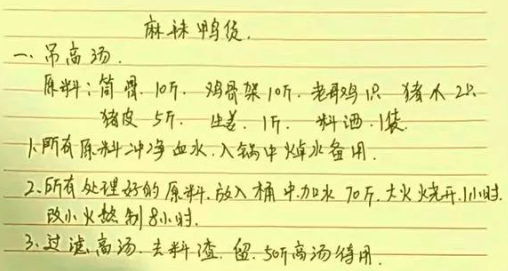 麻辣鸭货.
一、吊高汤.
原料:筒骨.10斤. 鸡骨架10斤. 老母鸡1只 猪爪2只
猪皮 5斤. 生姜.1斤. 料酒.1袋.
1.所有原料冲净血水.入锅中焯水备用.
2.所有处理好的原料.放入桶中.加水70斤.大火烧开.1小时.
改小火熬制8小时.
3.过滤高汤.去料渣.留.50斤高汤待用.